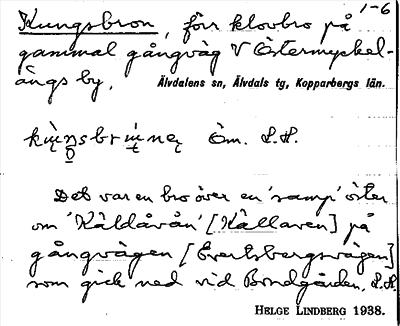 1-6
Kungsbron, förr klovbro på
gammal gångväg V Östermyckel-
ängs by. Älvdalens sn, Älvdals tg, Kopparbergs län.
Öm. L.H.
Det var en bro över en 'ramp' öster
om 'Käldåvån' [Källaren] på
gångvägen [Evertsbergsvägen]
som gick ned vid Bondgården. L.H.
HELGE LINDBERG 1938.